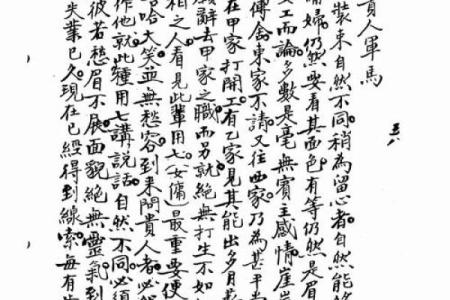 貴人軍馬
裝束自然不同。稍為留心者。自然能
婦。仍然要看其面色。有等仍然是眉
女工而論。多數是毫無賓主感情。崖岸
傳。舍東家不請。又往西家。乃為甚平
在甲家打開工。有乙家見其能出多月
辭去甲家之職。而另就。絕無打生不如
相之人。看見此輩用七。女傭。最重要便
哈大笑。並無愁容。到來問貴人者。必
作他就。此種用七講說話。自然不同。必須
彼若愁眉不展。面貌絕無靈氣。到
失業已久。現在已經得到線索。每有步
五八